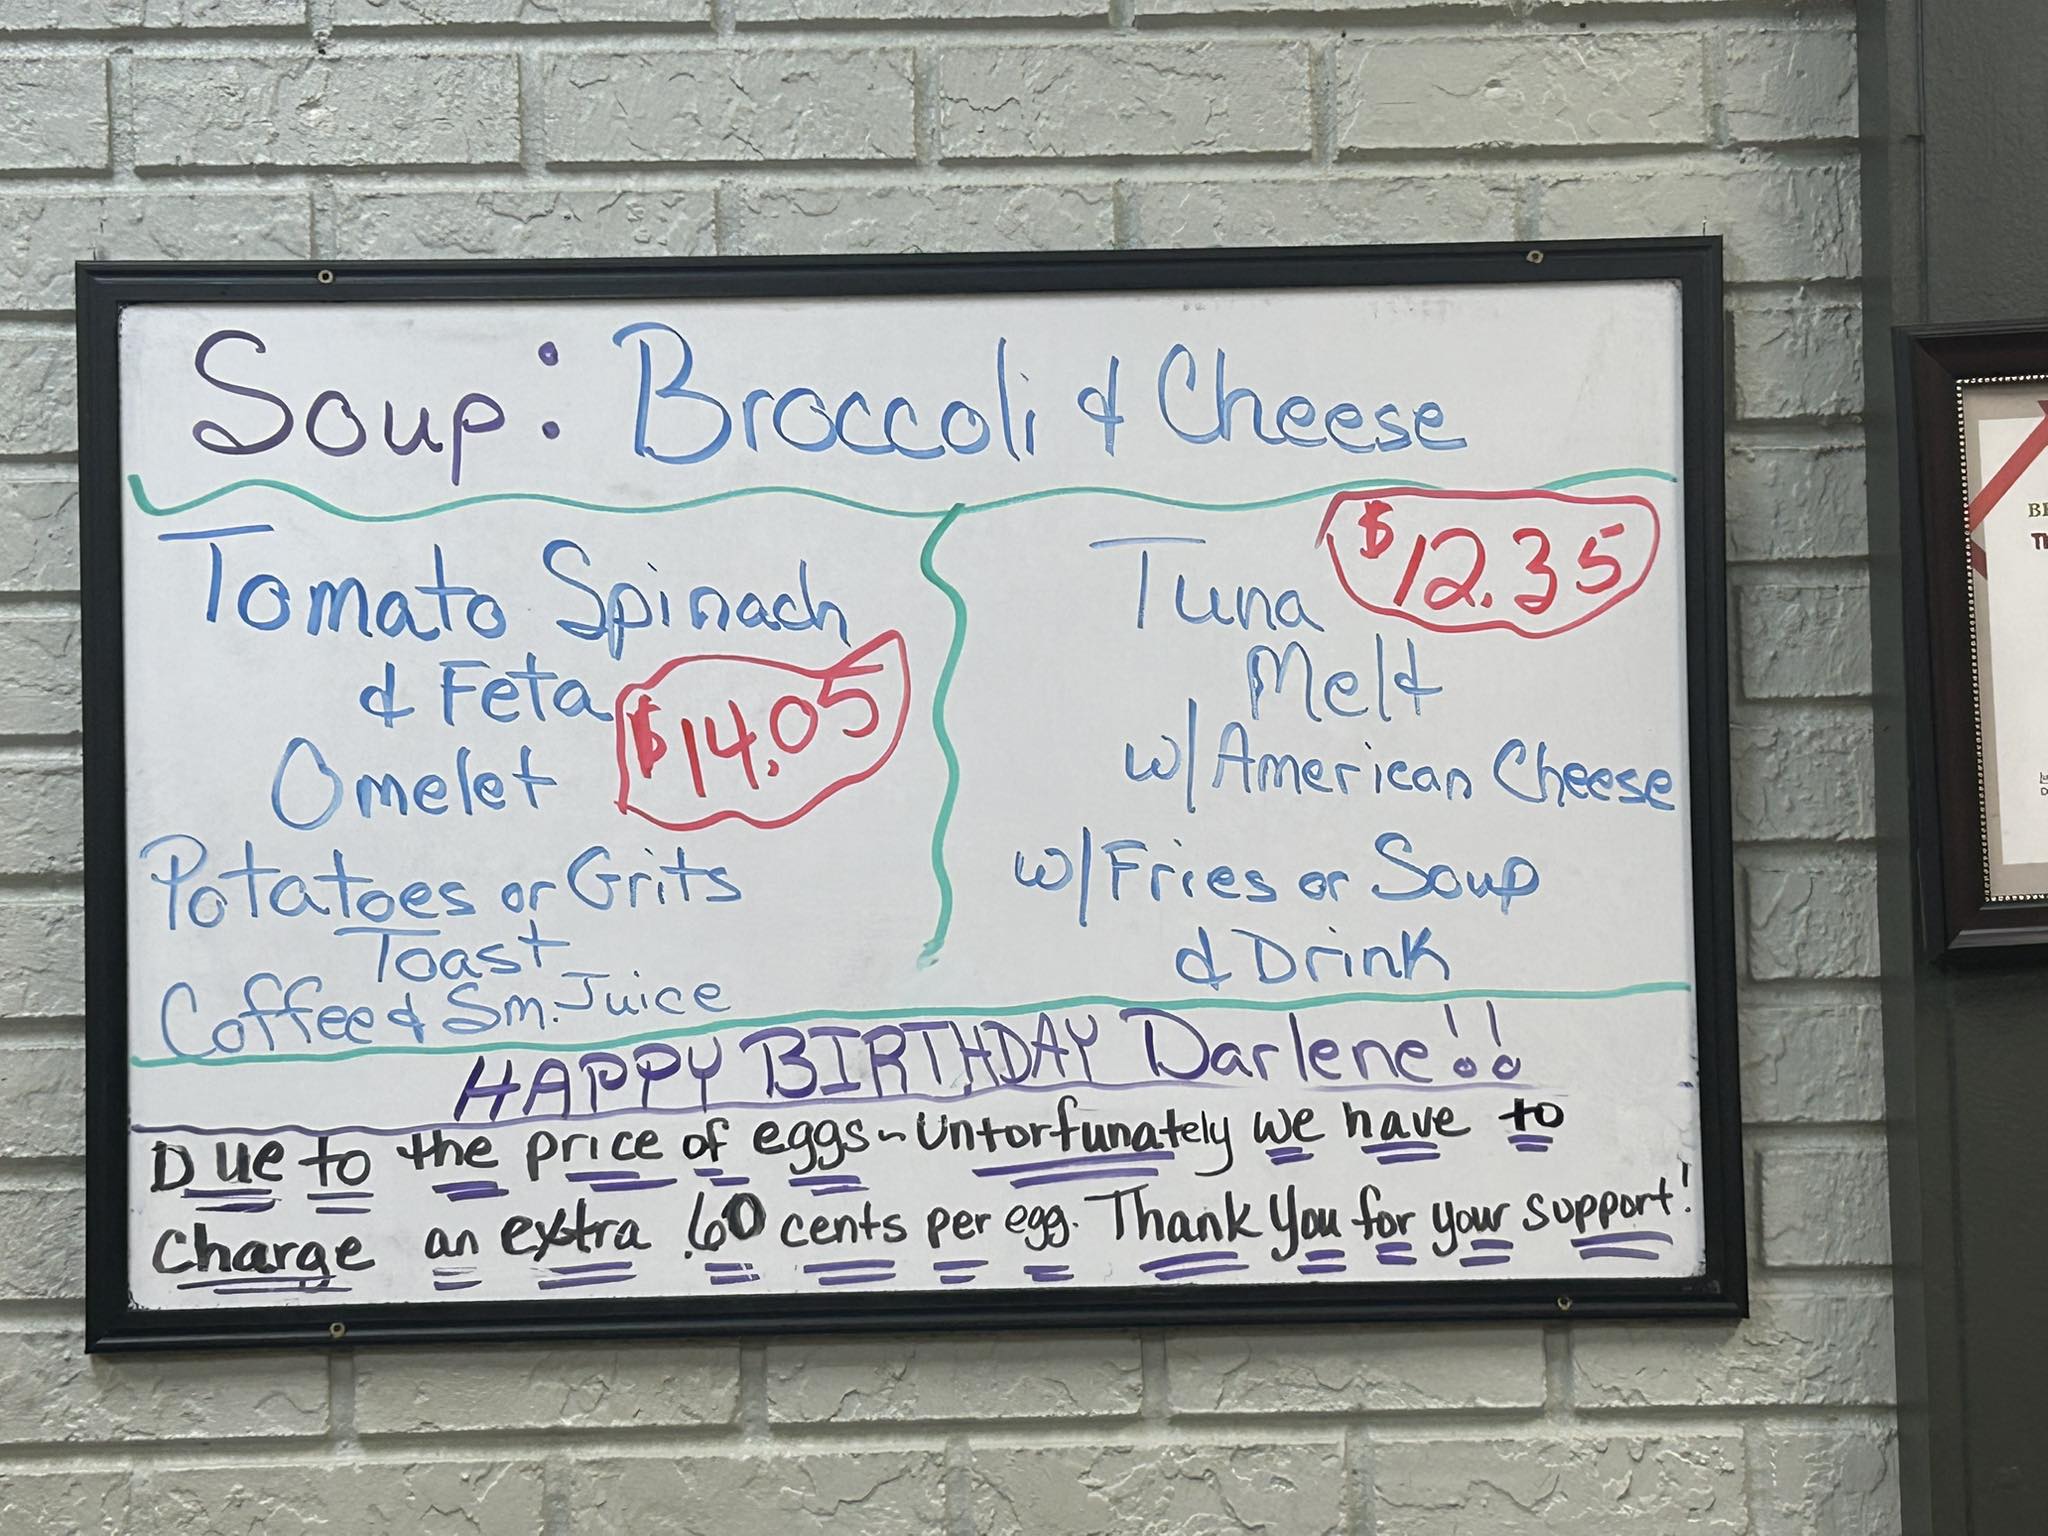 Soup: Broccoli & Cheese
Tomato Spinach
& Feta
Omelet
$14.05
Potatoes or Grits
Toast
Coffee & Sm. Juice
Tuna
$12.35
Melt
w/ American Cheese
w/ Fries or Soup
& Drink
HAPPY BIRTHDAY Darlene!!
Due to the price of eggs ~ Untorfunately we have to
charge an extra .60 cents per egg. Thank you for your support!